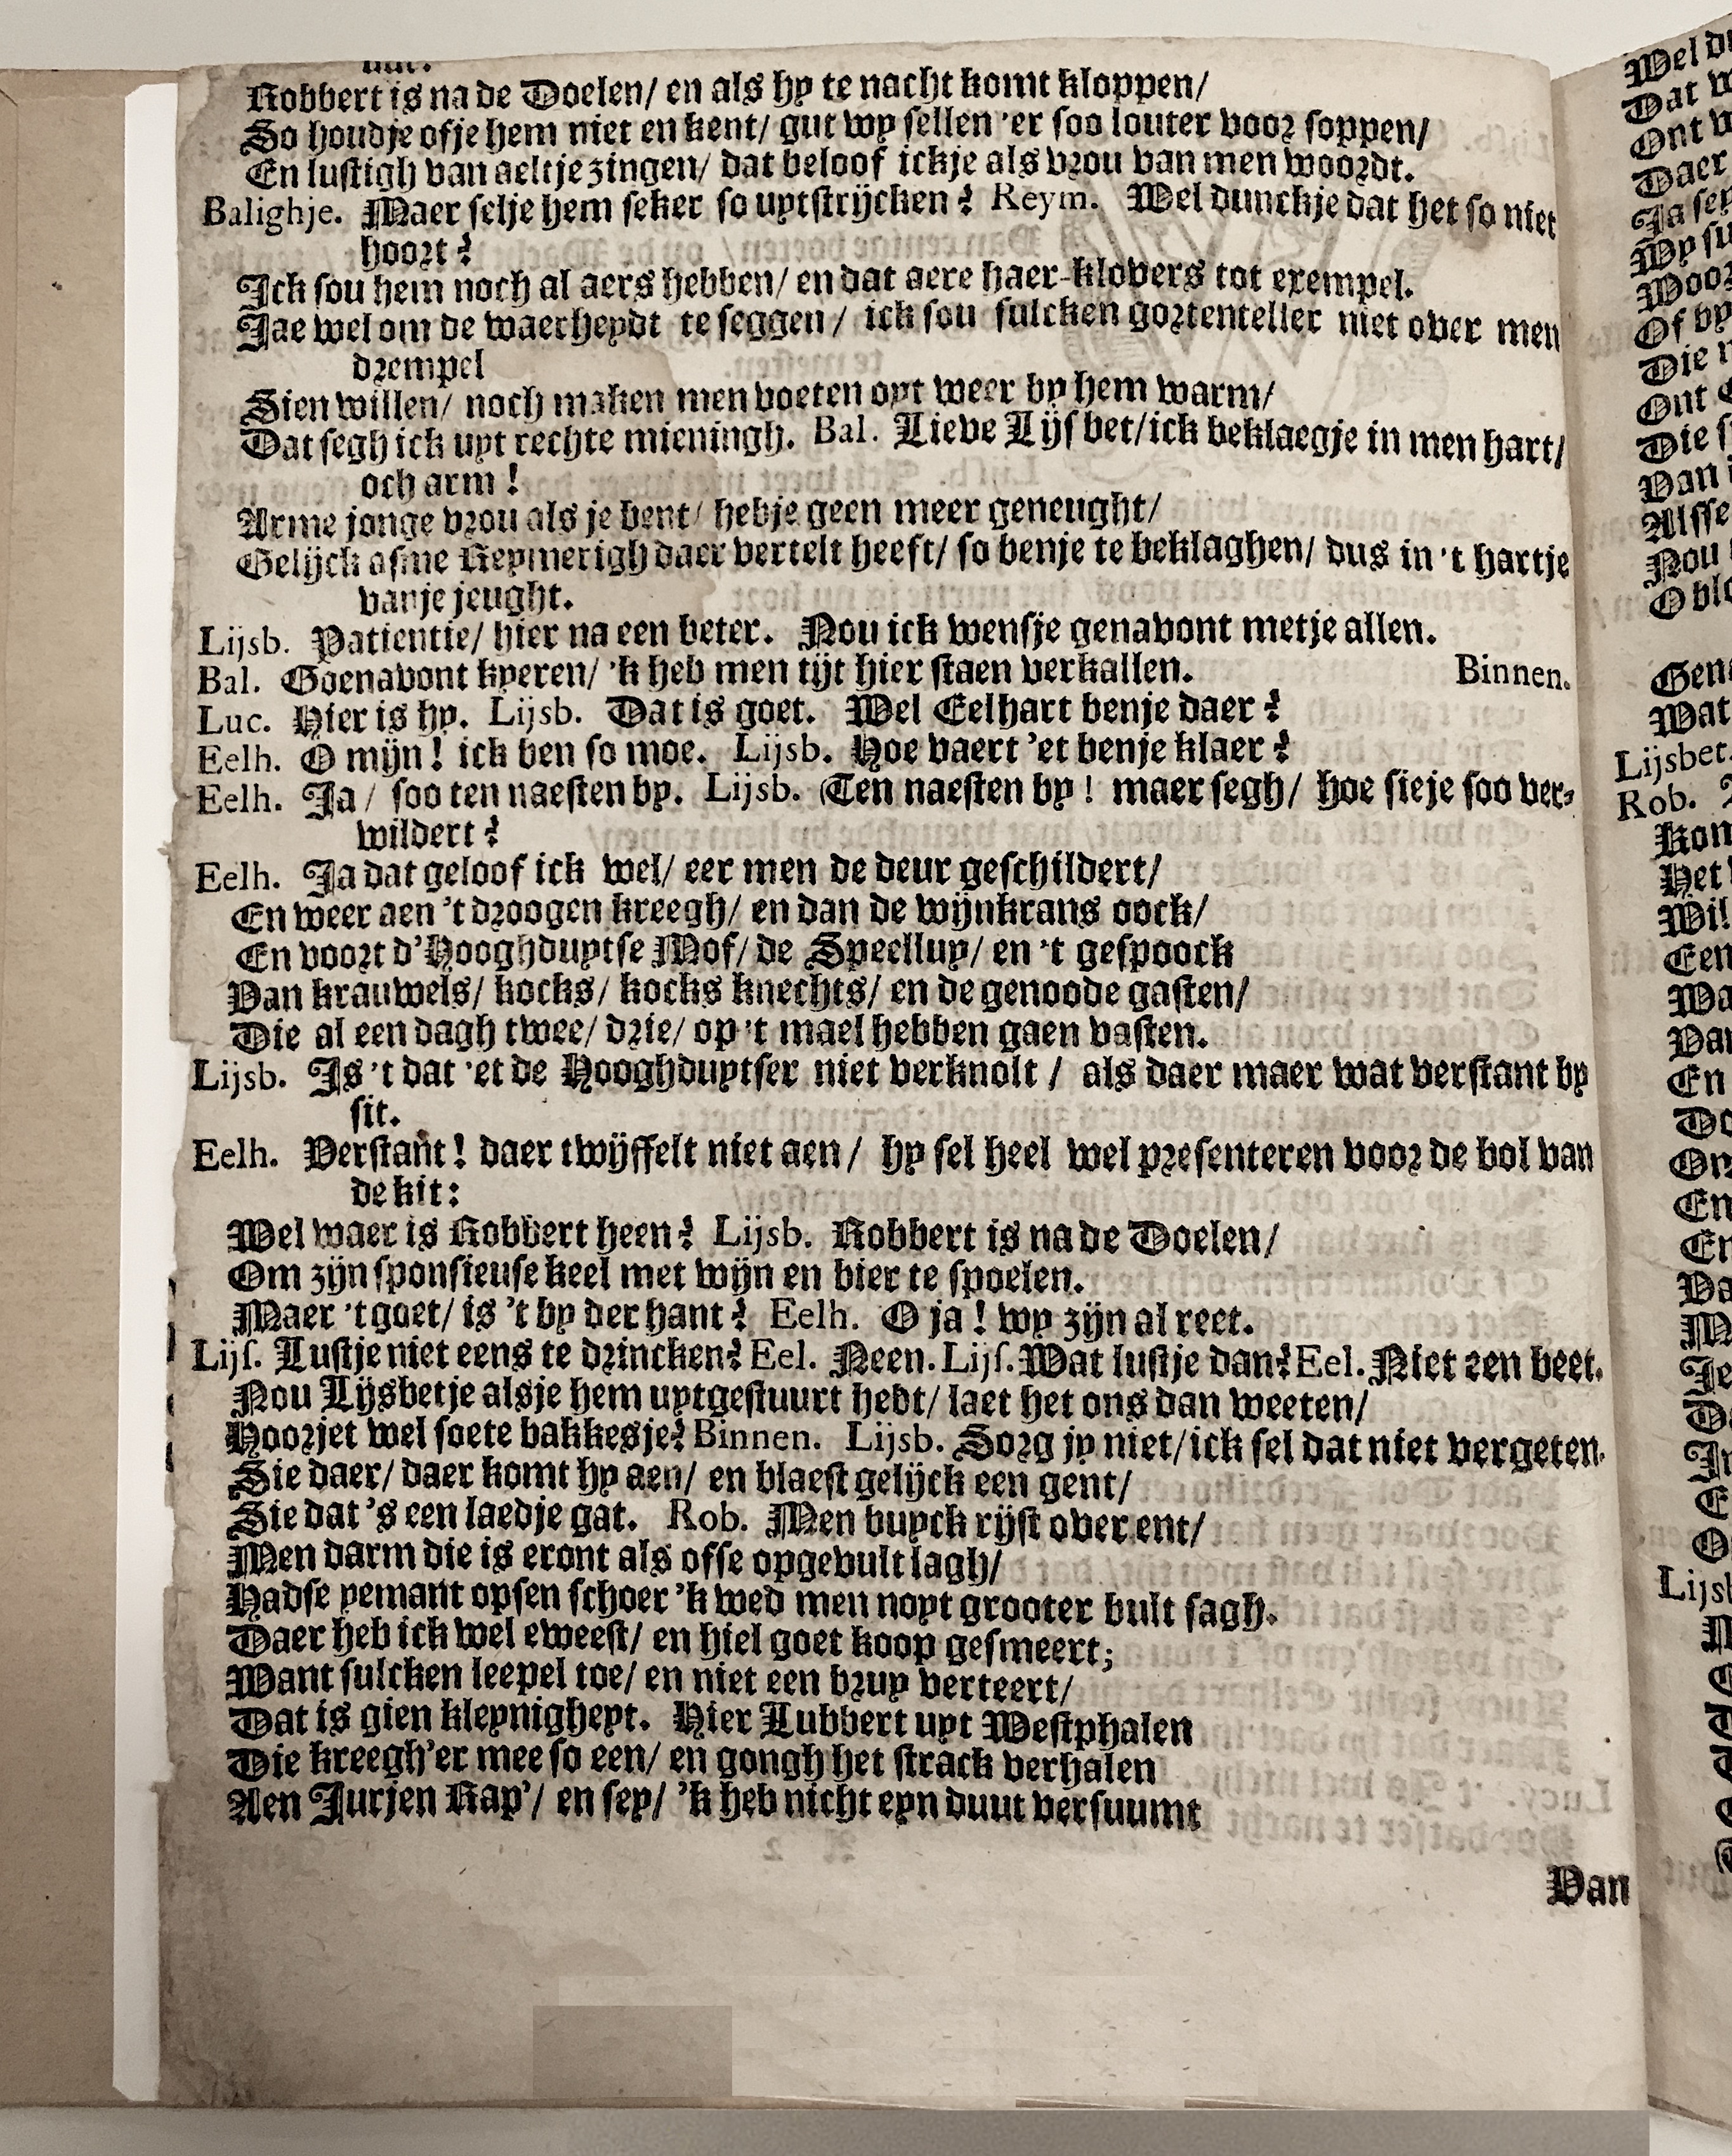 Robbert is na de Doelen/ en als hy te nacht komt kloppen/
So houdje ofje hem niet en kent/ gut wy sellen 'er soo louter voor soppen/
En lustigh van aeltje zingen/ dat beloof ickje als vrou van men woordt.
Balighje. Maer selje hem seker so uytstrijcken? Reym. Wel dunckje dat het so niet
hoort?
Ick sou hem noch al aers hebben/ en dat aere haer-klovers tot exempel.
Jae wel om de waerheydt te seggen/ ick sou sulcken gortenteller niet over men
drempel
Sien willen/ noch maken men voeten oyt weer by hem warm/
Dat segh ick uyt rechte mieningh. Bal. Lieve Lijsbet/ick beklaegje in men hart/
och arm!
Arme jonge vrou als je bent/ hebje geen meer geneught/
Gelijck asme Reymerigh daer vertelt heeft/ so benje te beklaghen/ dus in 't hartje
vanje jeught.
Lijsb. Patientie/ hier na een beter. Nou ick wensje genavont metje allen.
Bal. Goenavont kyeren/ 'k heb men tijt hier staen verkallen. Binnen.
Luc. Hier is hy. Lijsb. Dat is goet. Wel Eelhart benje daer?
Eelh. O mijn! ick ben so moe. Lijsb. Hoe vaert 'et benje klaer?
Eelh. Ja/ soo ten naesten by. Lijsb. (Ten naesten by! maer segh/ hoe sieje soo ver-
wildert?
Eelh. Ja dat geloof ick wel/ eer men de deur geschildert/
En weer aen 't droogen kreegh/ en dan de wijnkrans oock/
En voort d'Hooghduytse Mof/ de Speelluy/ en 't gespoock
Van krauwels/ kocks/ kocks knechts/ en de genoode gasten/
Die al een dagh twee/ drie/ op 't mael hebben gaen vasten.
Lijsb. Is 't dat 'et de Hooghduytser niet verknolt/ als daer maer wat verstant by
sit.
Eelh. Verstant! daer twijffelt niet aen/ hy sel heel wel presenteren voor de bol van
de kit:
Wel waer is Robbert heen? Lijsb. Robbert is na de Doelen/
Om zijn sponsieuse keel met wijn en bier te spoelen.
Maer 't goet/ is 't by der hant? Eelh. O ja! wy zijn al reet.
Lijs. Lustje niet eens te drincken? Eel. Neen. Lijs. Wat lustje dan? Eel. Niet een beet.
Nou Lijsbetje alsje hem uytgestuurt hebt/ laet het ons dan weeten/
Hoorjet wel soete bakkesje? Binnen. Lijsb. Sorg jy niet/ick sel dat niet vergeten.
Sie daer/ daer komt hy aen/ en blaest gelijck een gent/
Sie dat 's een laedje gat. Rob. Men buyck rijst over ent/
Men darm die is eront als offe opgevult lagh/
Hadse yemant opsen schoer 'k wed men noyt grooter bult sagh.
Daer heb ick wel eweest/ en hiel goet koop gesmeert;
Want sulcken leepel toe/ en niet een bruy verteert/
Dat is gien kleynigheyt. Hier Lubbert uyt Westphalen
Die kreegh'er mee so een/ en gongh het strack verhalen
Aen Jurjen Kap'/ en sey/ 'k heb nicht eyn duut versuumt
Van